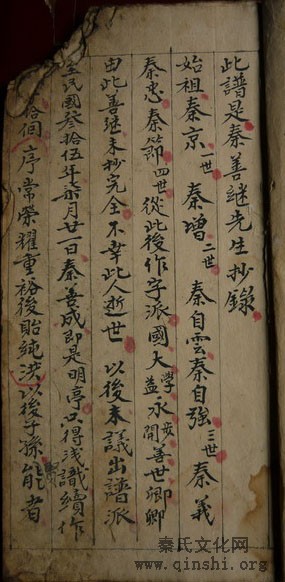 此譜是秦善继先生抄錄
始祖秦京一世 秦增二世 秦自雲秦自強三世 秦義
秦忠秦節四世從此後作字派國大學益永開世善世卿卿
由此善继未抄完全不幸此人逝世 以後未議出譜派
民國癸拾伍年柒月廿一日秦善成即是明亭只得淺識續作
拾個 序常榮耀重裕後貽純洪以後子孫能者
秦氏文化网
www.qinshi.org